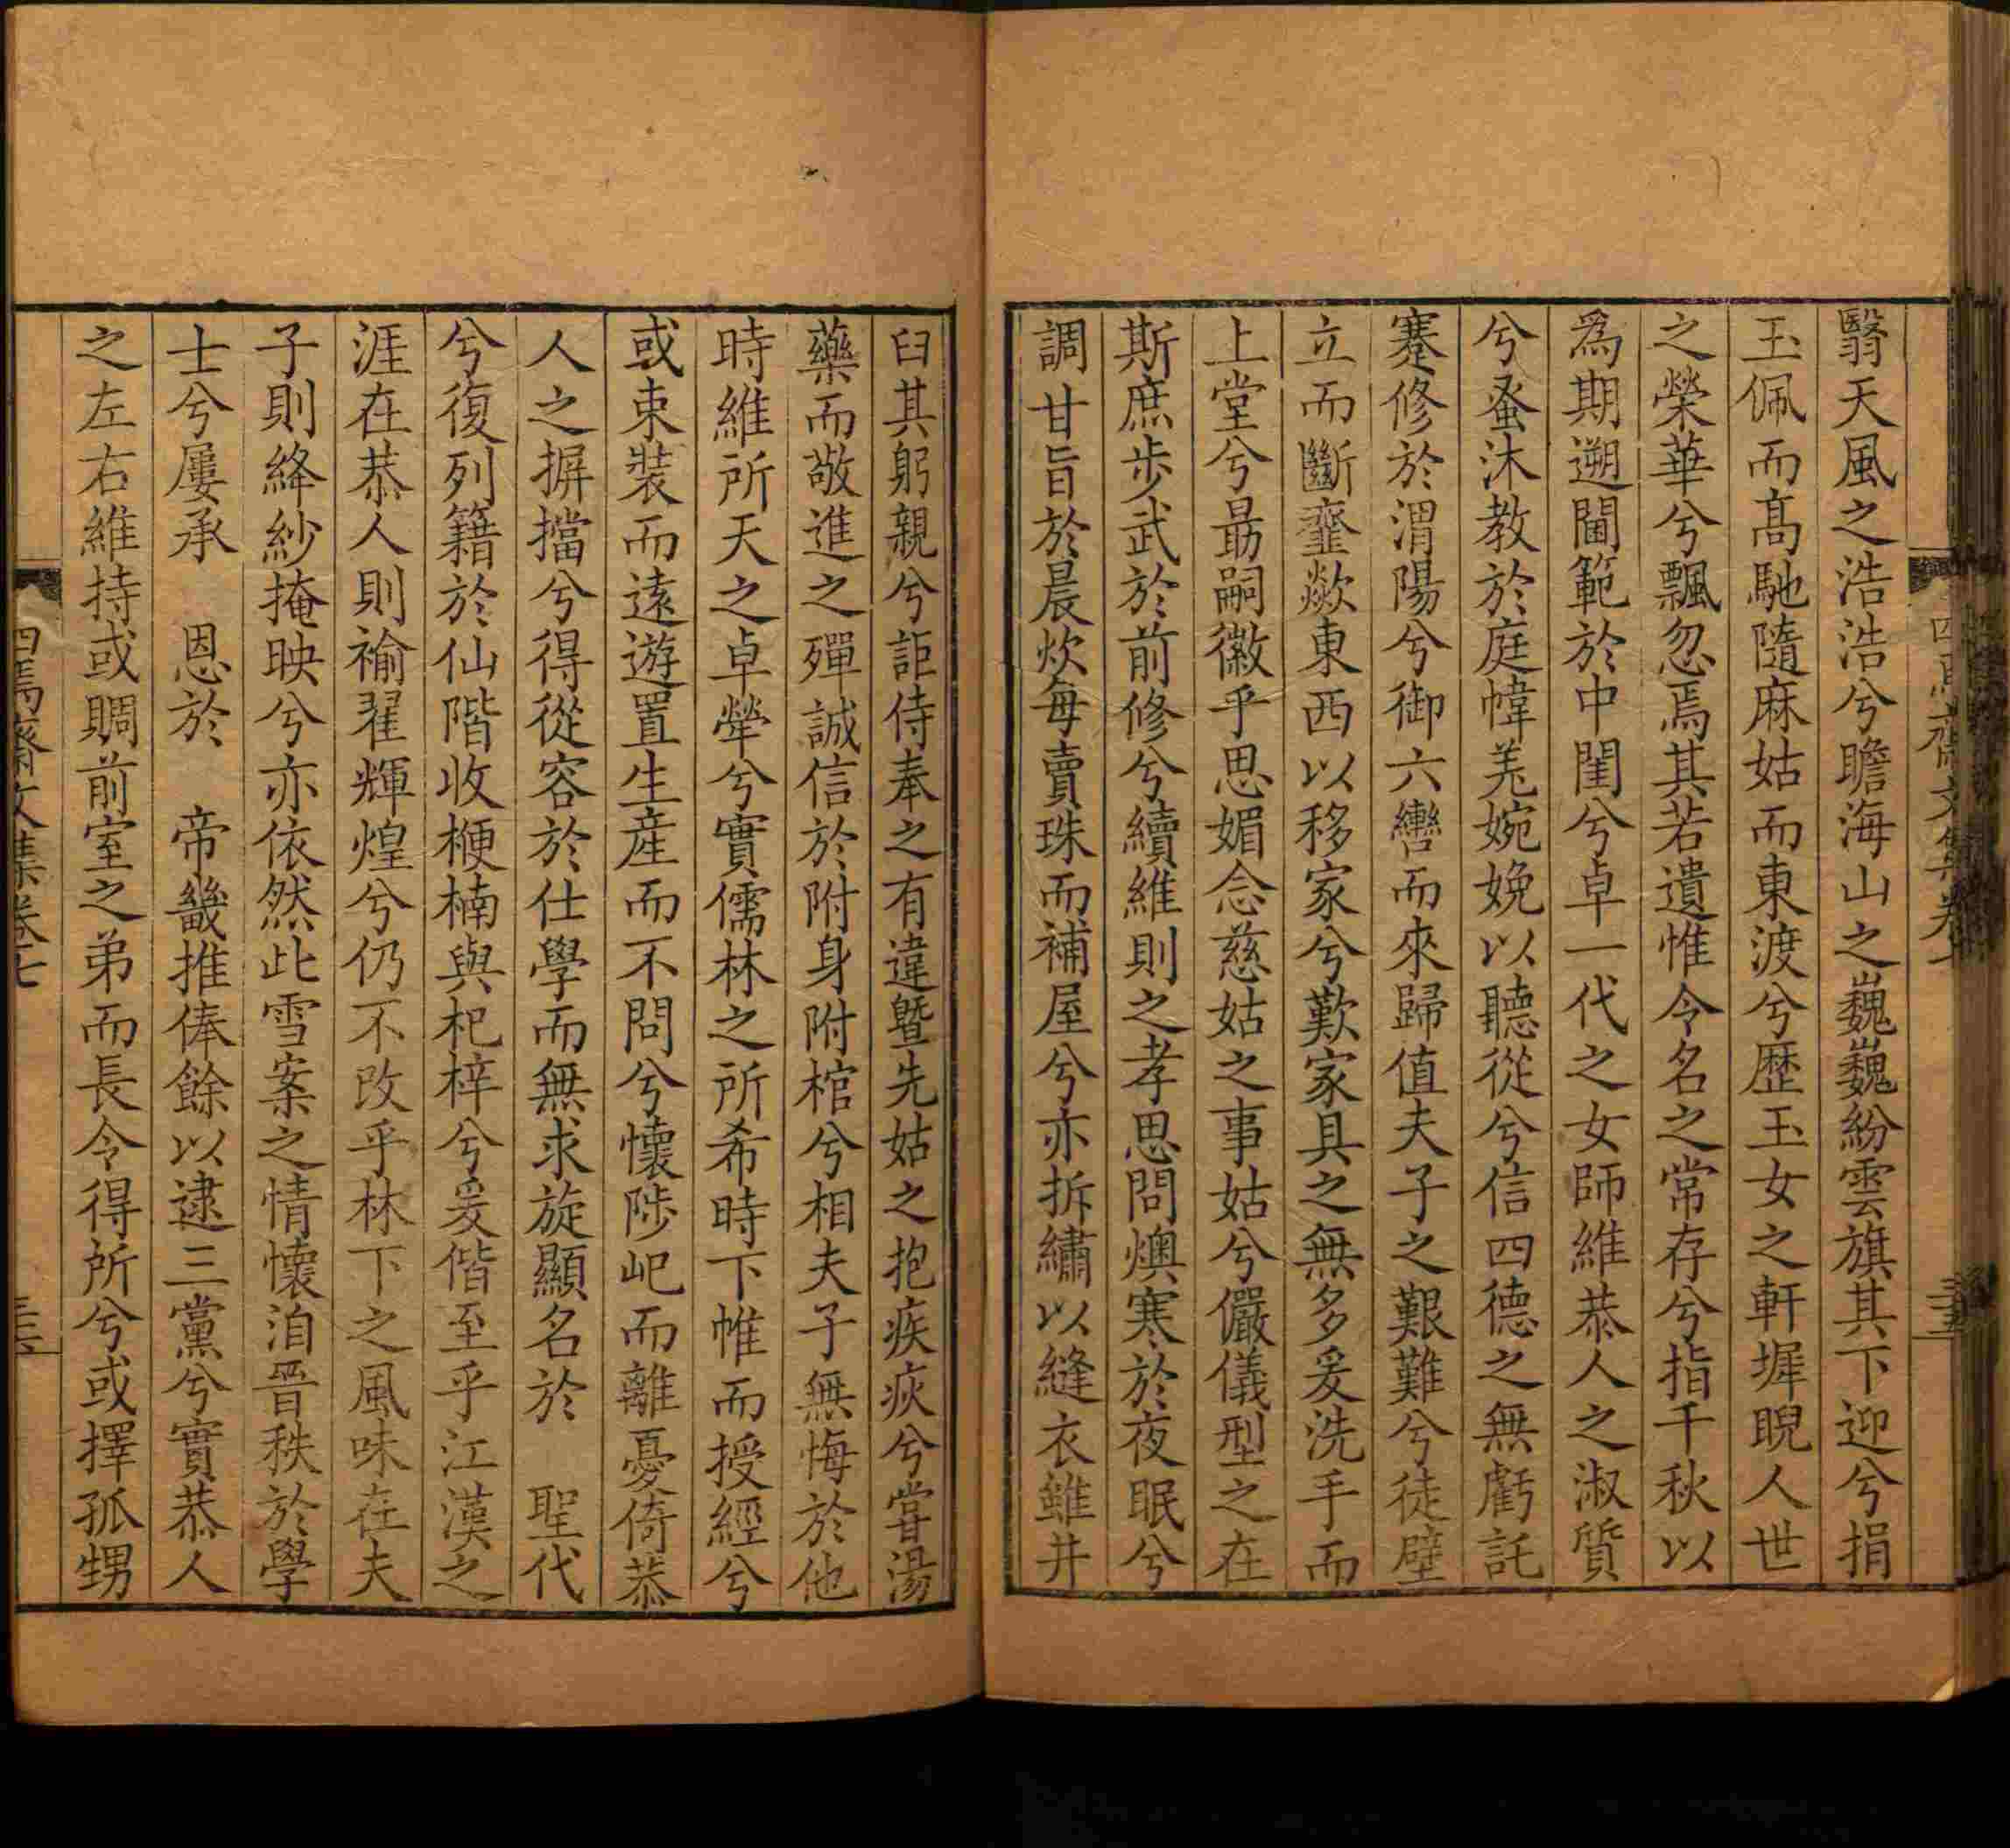 翳天風之浩浩兮瞻海山之巍巍紛雲旗其下迎兮捐
玉佩而髙馳隨麻姑而東渡兮歷玉女之軒墀睨人世
之榮華兮飄忽焉其若遺惟令名之常存兮指千秋以
爲期遡閫範於中閨兮卓一代之女師維恭人之淑質
兮蚤沐教於庭幃羌婉娩以聽從兮信四德之無虧託
蹇修於渭陽兮御六轡而來歸值夫子之艱難兮徒壁
立而斷虀歘東西以移家兮歎家具之無多爰洗手而
上堂兮勗嗣徽乎思媚念慈姑之事姑兮儼儀型之在
斯庶步武於前修兮續維則之孝思問燠寒於夜眠兮
調甘旨於晨炊每賣珠而補屋兮亦拆繡以縫衣雖井
臼其躬親兮詎侍奉之有違曁先姑之抱疾疢兮嘗湯
藥而敬進之殫誠信於附身附棺兮相夫子無悔於他
時維所天之卓犖兮實儒林之所希時下帷而授經兮
或束裝而遠遊置生産而不問兮懷陟屺而離憂倚恭
人之摒擋兮得從容於仕學而無求旋顯名於　聖代
兮復列籍於仙階收梗楠與杞梓兮爰偕至乎江漢之
涯在恭人則褕翟輝煌兮仍不改乎林下之風味在夫
子則絳紗掩映兮亦依然此雪案之情懷洎晉秩於學
士兮屢承　恩於　帝畿推俸餘以逮三黨兮實恭人
之左右維持或賙前室之弟而長令得所兮或擇孤甥
四焉齋文集卷七
三六